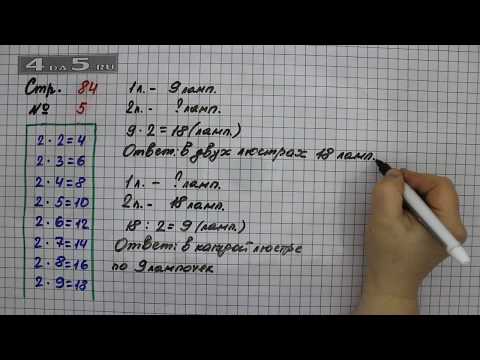 4 DA 5 .RU
Стр. 84
№ 5
2 · 2 = 4
2 · 3 = 6
2 · 4 = 8
2 · 5 = 10
2 · 6 = 12
2 · 7 = 14
2 · 8 = 16
2 · 9 = 18
1л. - 9 ламп.
2л. - ? ламп.
9 · 2 = 18 (ламп.)
Ответ: в двух люстрах 18 ламп.
1л. - ? ламп.
2л. - 18 ламп.
18 : 2 = 9 (ламп.)
Ответ: в каждой люстре
по 9 лампочек